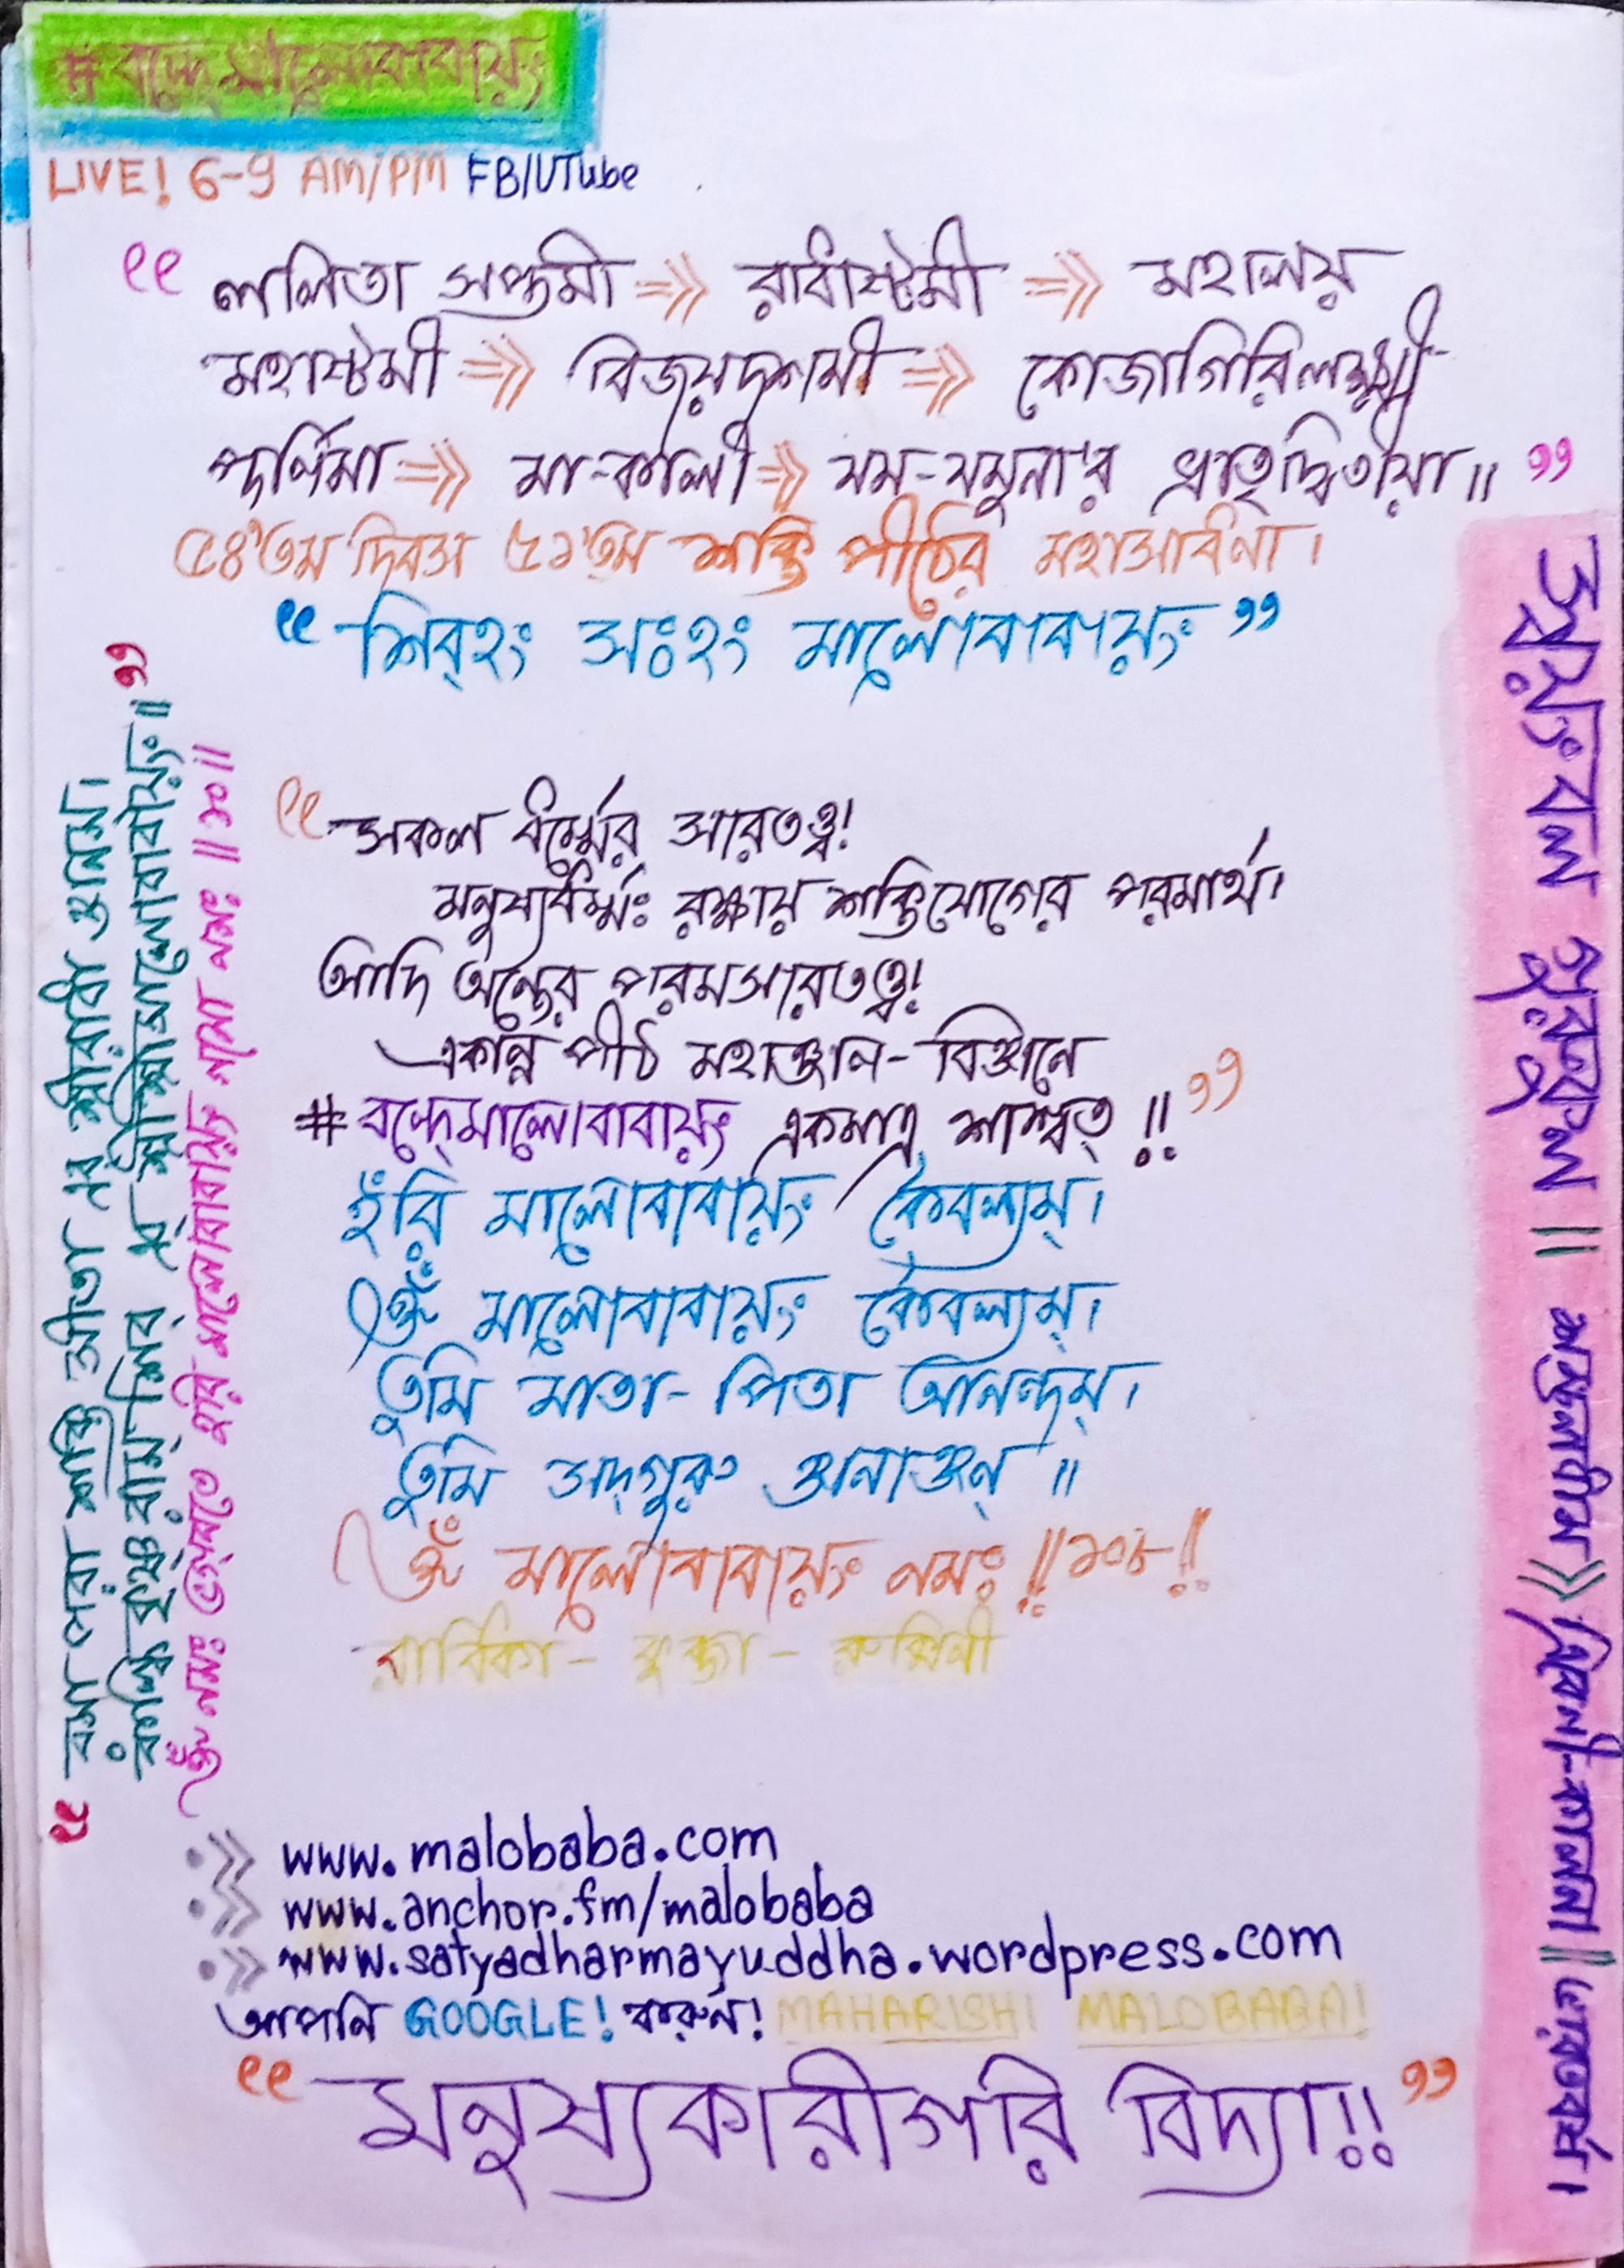 #বন্দেমালোবাবায়ং
LIVE! 6-9 AM/PM FB/UTube
“ ললিতা সপ্তমী ⇒ রাধাষ্টমী ⇒ মহালয়
মহাষ্টমী ⇒ বিজয়দশমী ⇒ কোজাগিরিলক্ষ্মী-
পূর্ণিমা ⇒ মা-কালী ⇒ যম-যমুনা'র ভ্রাতৃদ্বিতীয়া॥ ”
৫৪'তম দিবস ৫১'তম শক্তি পীঠের মহাসাধনা।
“ শিবহং সঃহং মালোবাবায়ং ”
“ সকল ধর্ম্মের সারতত্ত্ব!
মনুষ্যধর্ম্মঃ রক্ষায় শক্তিযোগের পরমার্থ।
আদি অন্তের পরমসারতত্ত্ব!
একান্ন পীঠ মহাজ্ঞান-বিজ্ঞানে
#বন্দেমালোবাবায়ং একমাত্র শাশ্বত্ !! ”
হঁরি মালোবাবায়ং কৈবল্যম্।
ওঁ মালোবাবায়ং কৈবল্যম্।
তুমি মাতা-পিতা আনন্দম্।
তুমি সদ্গুরু জ্ঞানাঞ্জন্ ॥
ওঁ মালোবাবায়ং নমঃ !!১০৮!!
রাধিকা - কুব্জা - রুক্মিনী
www.malobaba.com
www.anchor.fm/malobaba
www.satyadharmayuddha.wordpress.com
আপনি GOOGLE! করুন! MAHARISHI MALOBABA!
“ মনুষ্যকারীগরি বিদ্যা!! ”
পরা শক্তি সীতা শ্রীরাধা
কৃষ্ণ রাম্ শিব্ শ্রীশ্রীমালোবাবায়ং॥ ”
ওঁ নমঃ ভগবতে হরি মালোবাবায়ং নমো নমঃ ॥১০॥
স্বয়ং বল ॥ ত্রিবর্ণ-কালনা ॥ ভারতবর্ষ।